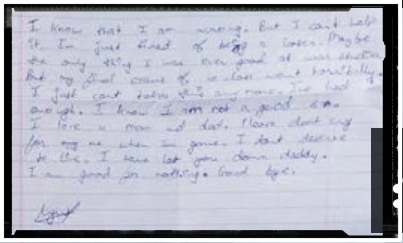 I know that I am wrong. But I can't help
it. I'm just tired of being a loser. Maybe
the only thing I was ever good at was
But my final exams of went horribly.
I just cant take this any more. I've had
enough. I know I am not a good
I love u mom and dad. Please dont cry
for me when im gone. I dont deserve
to live. I have let you down daddy.
I am good for nothing. Good bye.